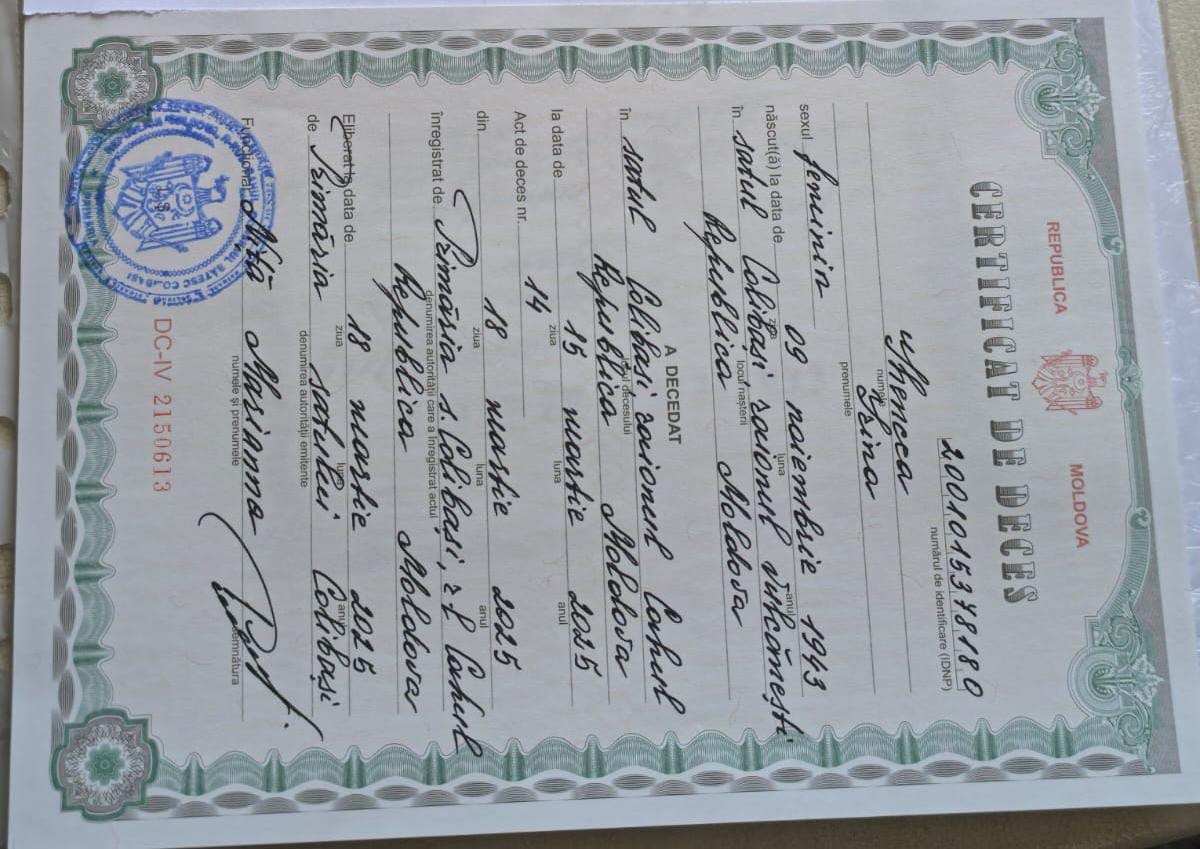 REPUBLICA MOLDOVA
CERTIFICAT DE DECES
2001015378180
numărul de identificare (IDNP)
Ghencea
numele
Irina
prenumele
sexul feminin născut(ă) la data de 09 noiembrie 1943
ziua luna anul
în satul Colibași raionul Vulcănești
locul nașterii
Republica Moldova
A DECEDAT
în satul Colibași raionul Cahul
locul decesului
Republica Moldova
la data de 15 martie 2025
ziua luna anul
Act de deces nr. 14
din 18 martie 2025
ziua luna anul
înregistrat de Primăria s. Colibași, r-l Cahul
denumirea autorității care a înregistrat actul
Republica Moldova
Eliberat la data de 18 martie 2025
ziua luna anul
de Primăria satului Colibași
denumirea autorității emitente
Funcționar Niță Marianna
numele și prenumele semnătura
DC-IV 2150613